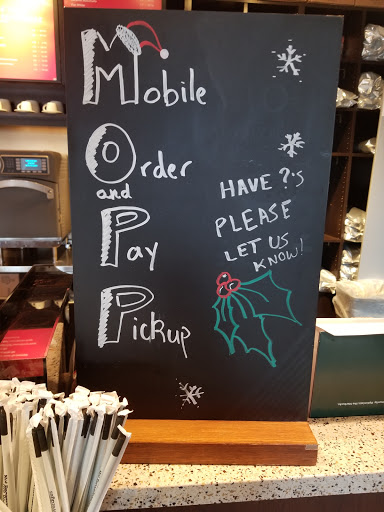 Mobile
Order
and
Pay
Pickup
HAVE ?'s
PLEASE
LET US
KNOW!